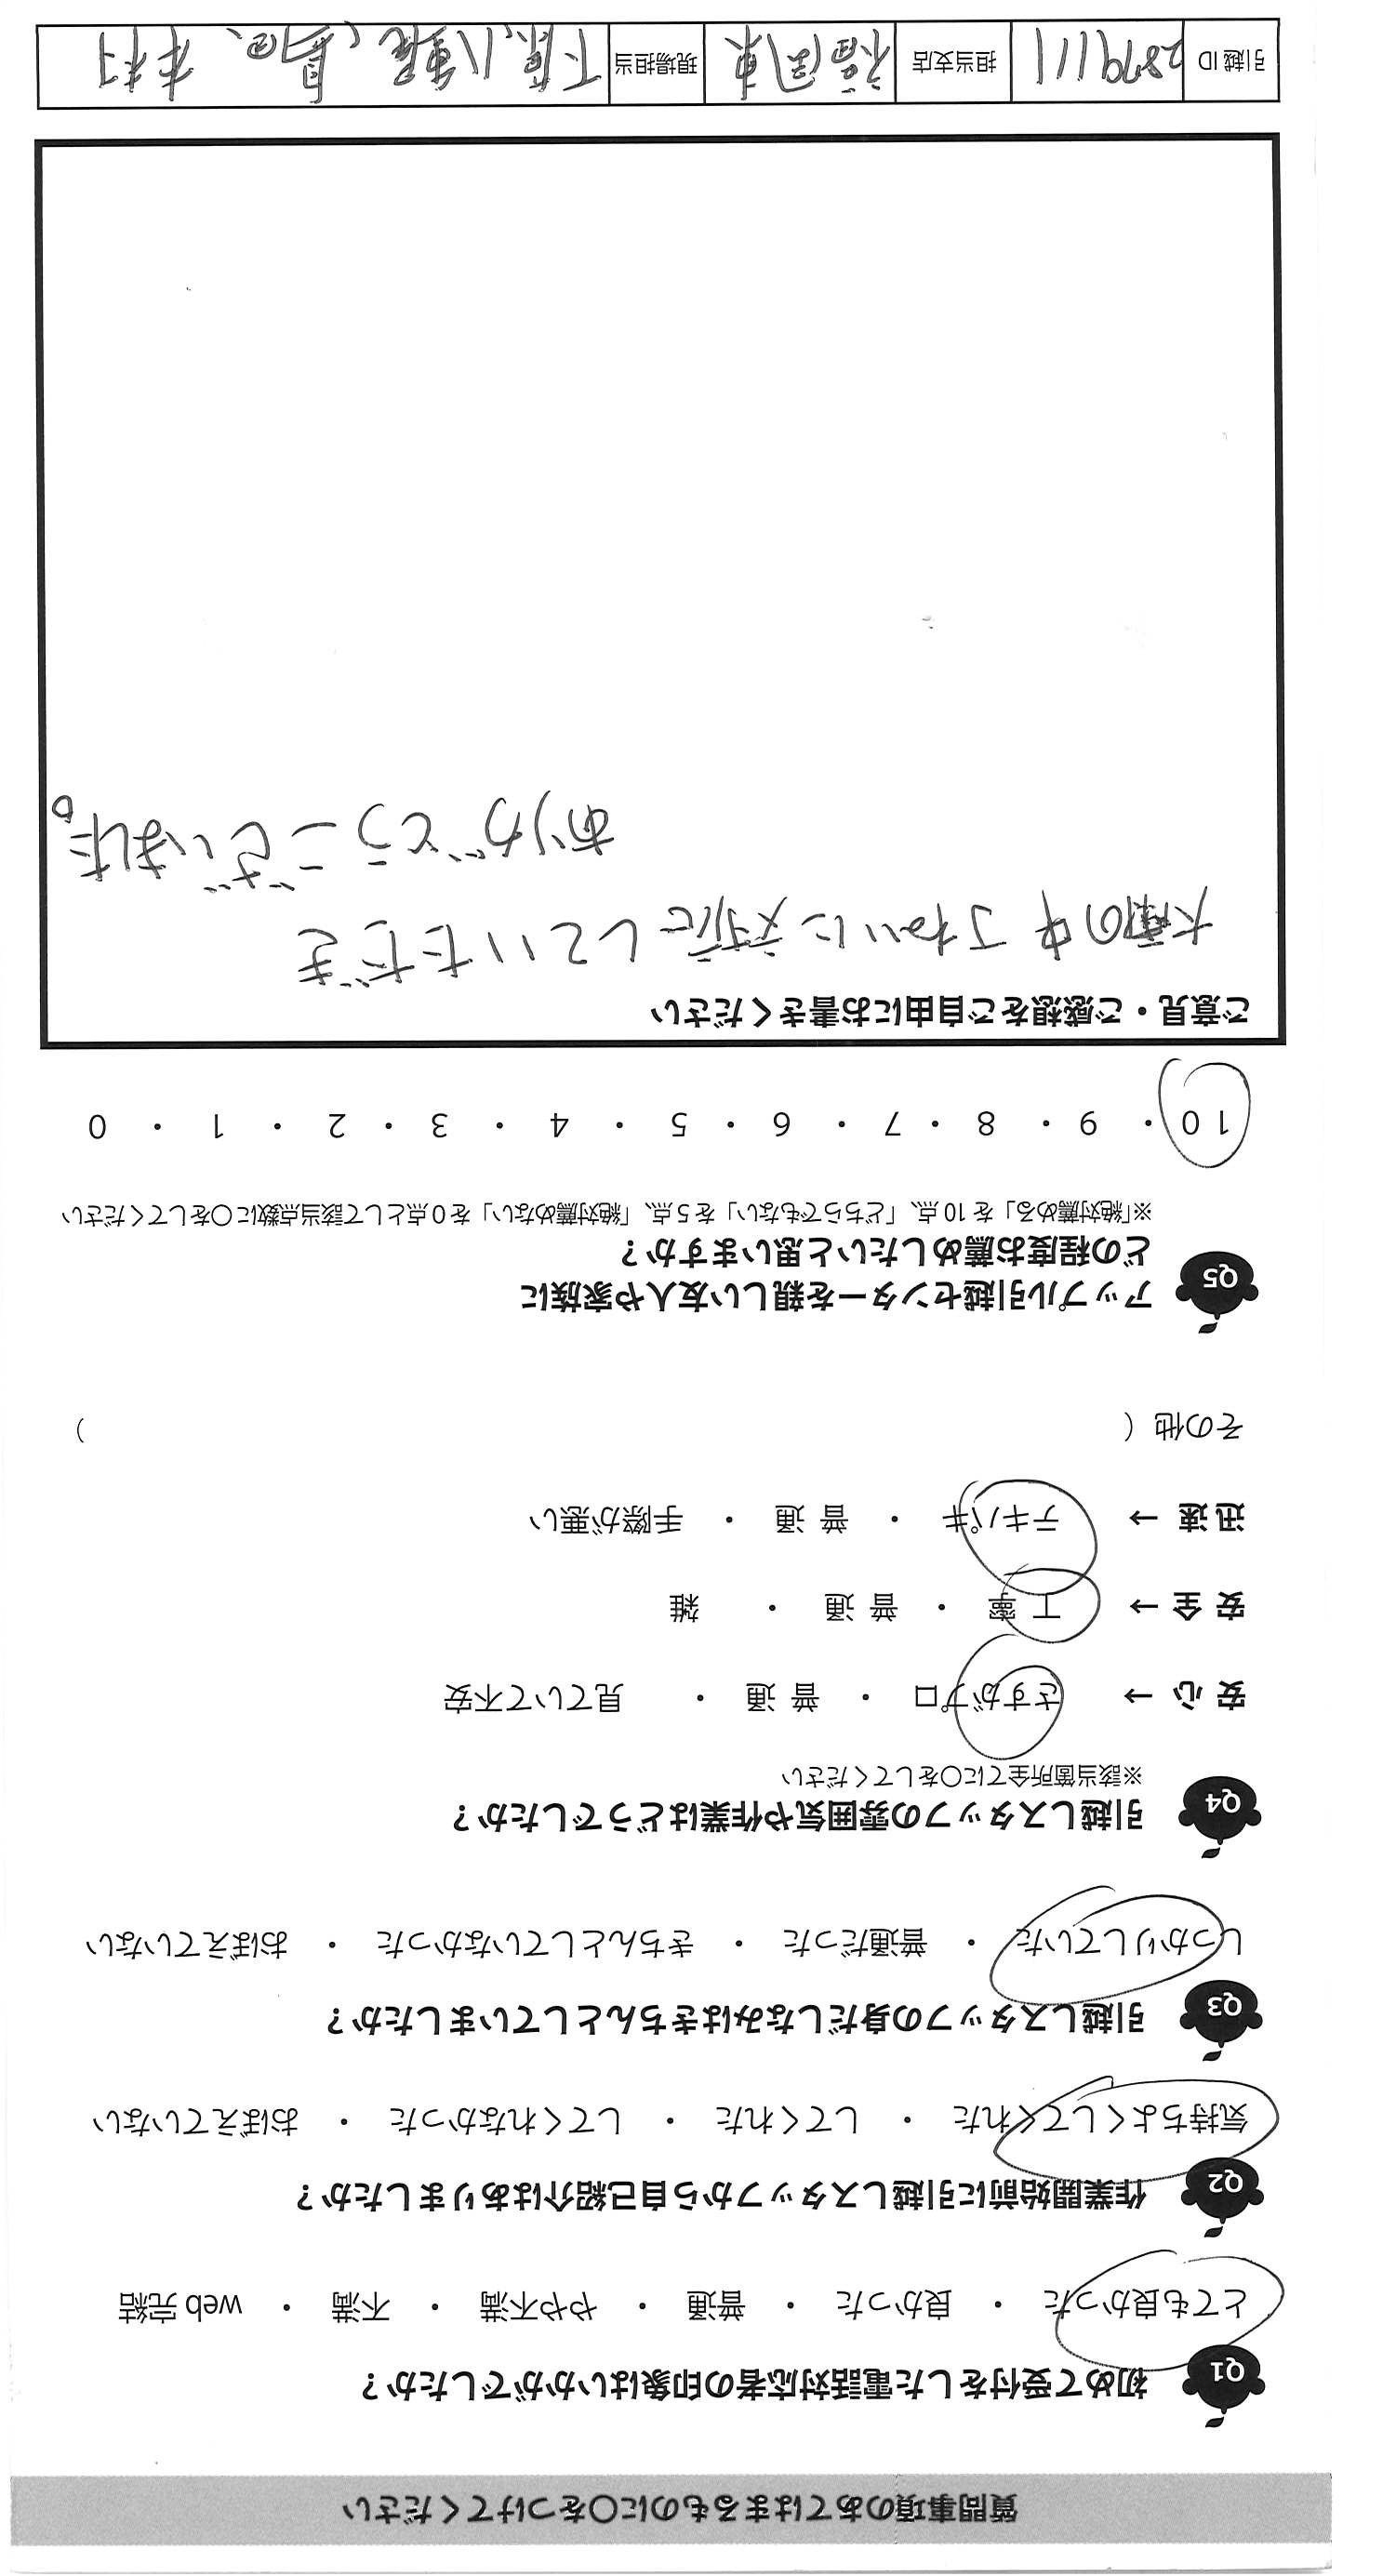 質問事項のあてはまるものに○をつけてください
Q1 初めて受付をした電話対応者の印象はいかがでしたか？
とても良かった ・ 良かった ・ 普通 ・ やや不満 ・ 不満 ・ web完結
Q2 作業開始前に引越しスタッフから自己紹介はありましたか？
気持ちよくしてくれた ・ してくれた ・ してくれなかった ・ おぼえていない
Q3 引越しスタッフの身だしなみはきちんとしていましたか？
しっかりしていた ・ 普通だった ・ きちんとしていなかった ・ おぼえていない
Q4 引越しスタッフの雰囲気や作業はどうでしたか？
※該当箇所全てに○をしてください
安心→ さすがプロ ・ 普通 ・ 見ていて不安
安全→ 丁寧 ・ 普通 ・ 雑
迅速→ テキパキ ・ 普通 ・ 手際が悪い
その他（ ）
Q5 アップル引越センターを親しい友人や家族に
どの程度お薦めしたいと思いますか？
※「絶対薦める」を10点、「どちらでもない」を5点、「絶対薦めない」を0点として該当点数に○をしてください
10 ・ 9 ・ 8 ・ 7 ・ 6 ・ 5 ・ 4 ・ 3 ・ 2 ・ 1 ・ 0
ご意見・ご感想をご自由にお書きください
大雨の中 ていねいに対応していただき
ありがとうございました。
引越ID 2879111 担当支店 福岡東 現場担当 下原、八重尾、島田、本村